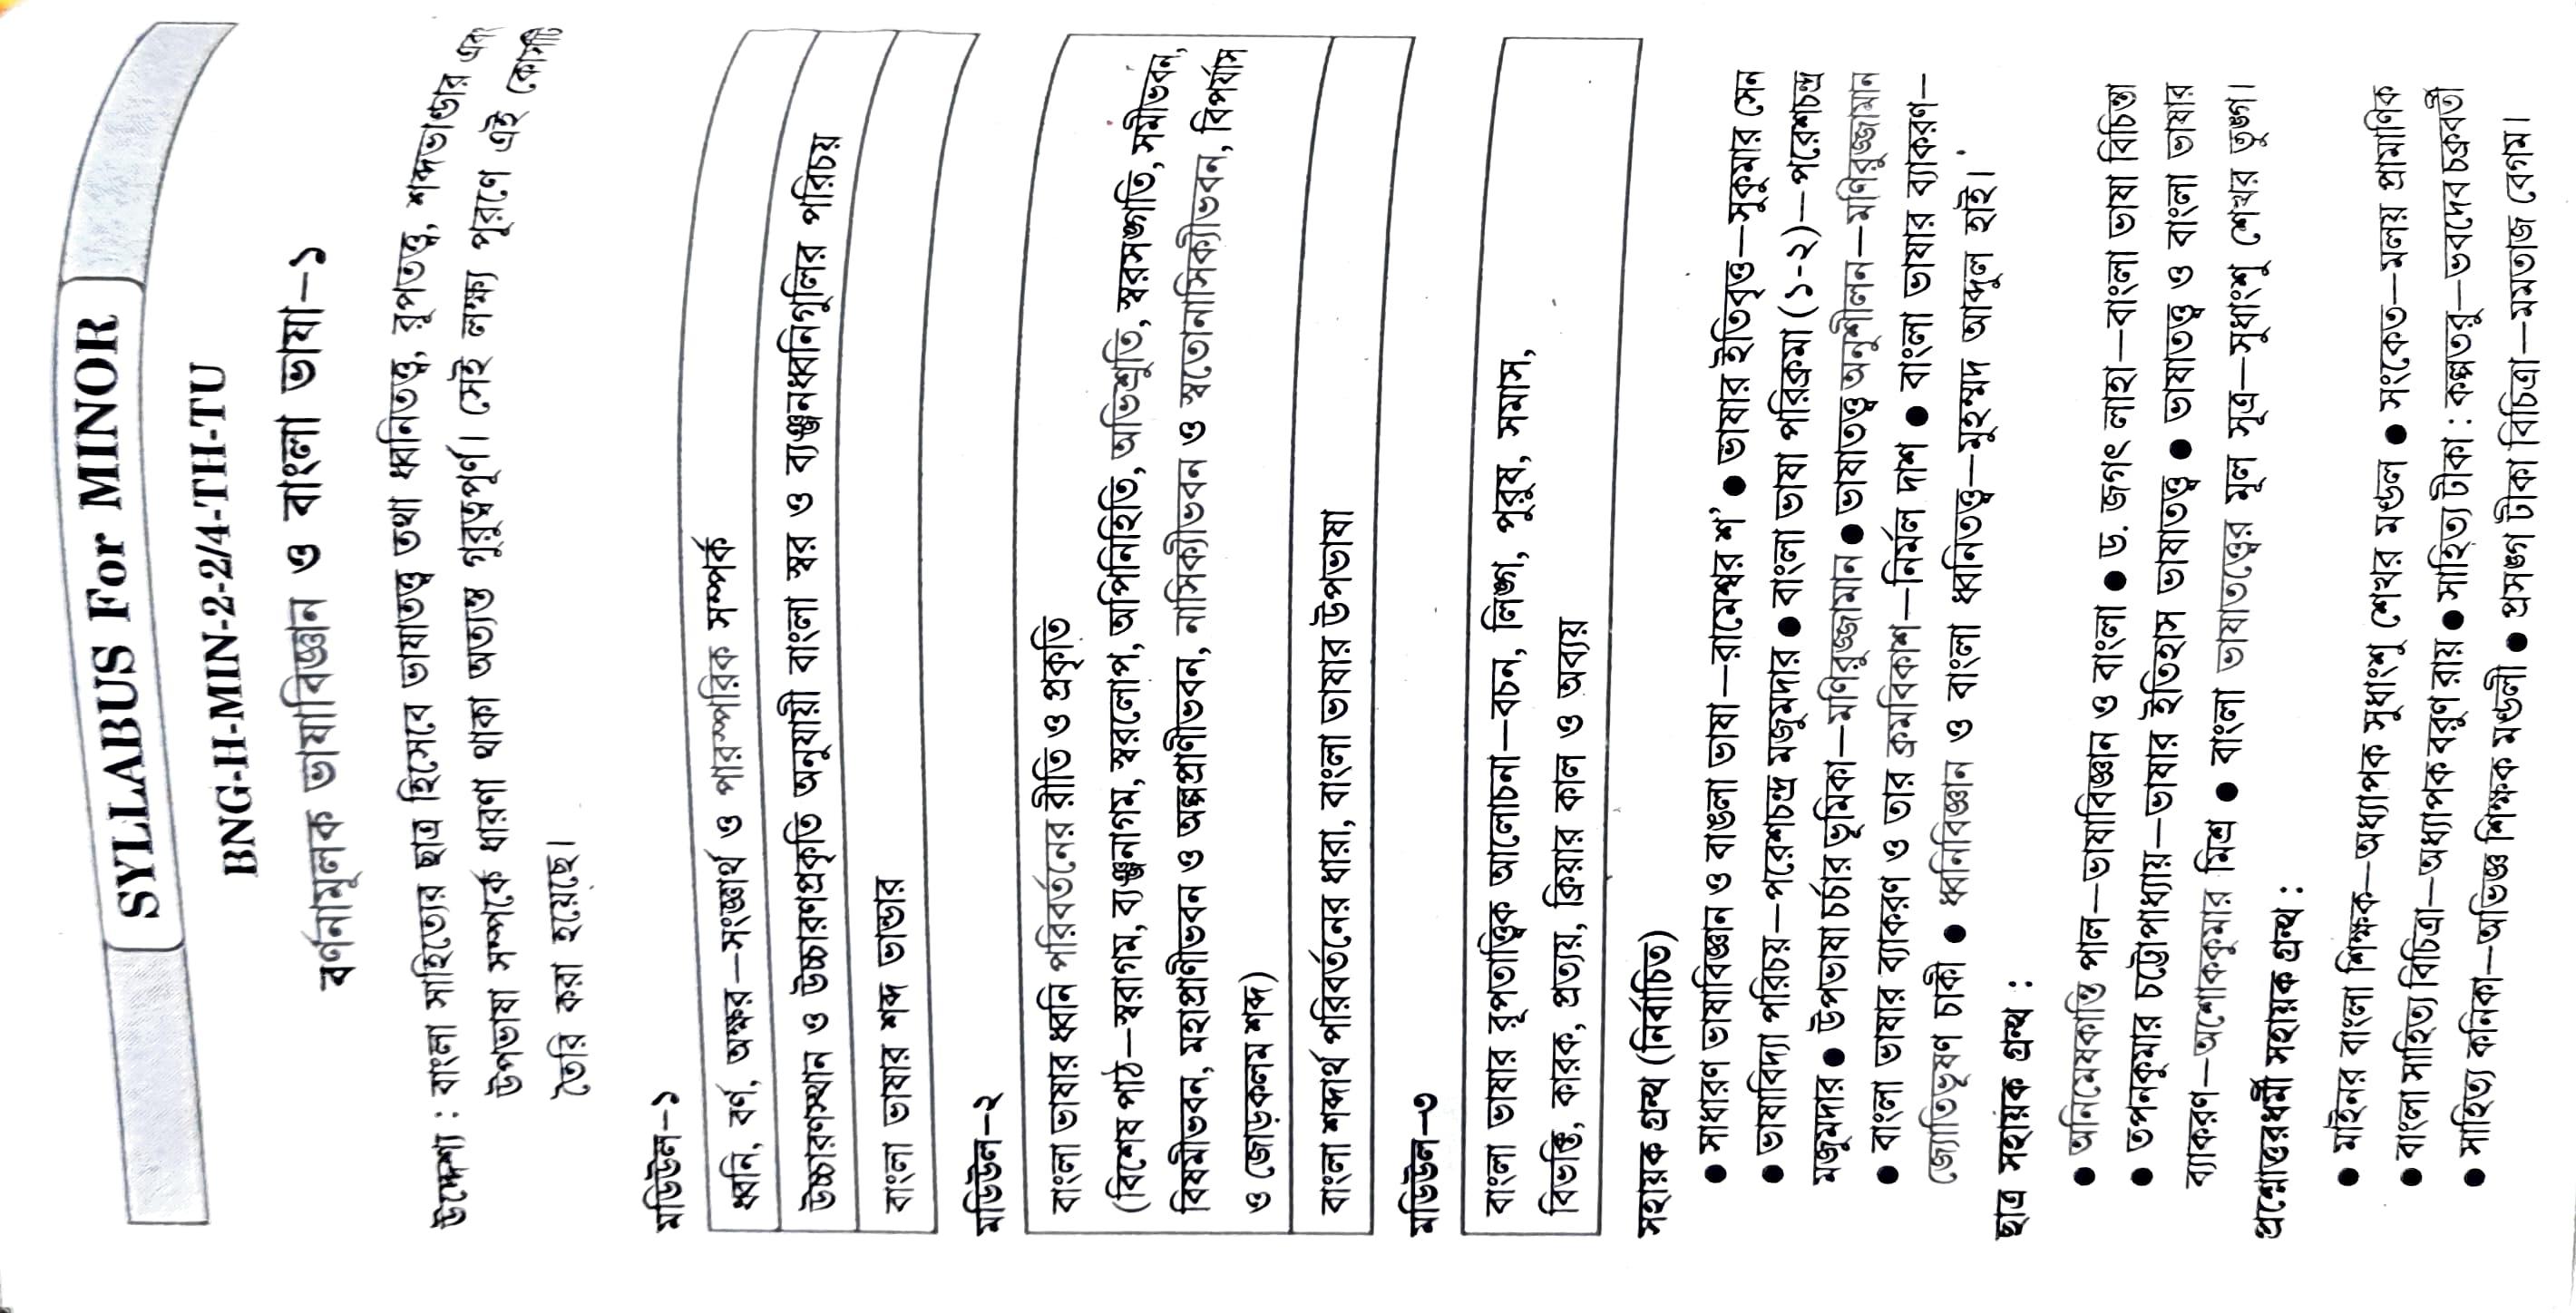 SYLLABUS For MINOR
BNG-H-MIN-2-2/4-TH-TU
বর্ণনামূলক ভাষাবিজ্ঞান ও বাংলা ভাষা–১
উদ্দেশ্য : বাংলা সাহিত্যের ছাত্র হিসেবে ভাষাতত্ত্ব তথা ধ্বনিতত্ত্ব, রূপতত্ত্ব, শব্দভাণ্ডার এবং
উপভাষা সম্পর্কে ধারণা থাকা অত্যন্ত গুরুত্বপূর্ণ। সেই লক্ষ্য পূরণে এই কোর্সটি
তৈরি করা হয়েছে।
মডিউল–১
ধ্বনি, বর্ণ, অক্ষর—সংজ্ঞার্থ ও পারস্পরিক সম্পর্ক
উচ্চারণস্থান ও উচ্চারণপ্রকৃতি অনুযায়ী বাংলা স্বর ও ব্যঞ্জনধ্বনিগুলির পরিচয়
বাংলা ভাষার শব্দ ভান্ডার
মডিউল–২
বাংলা ভাষার ধ্বনি পরিবর্তনের রীতি ও প্রকৃতি
(বিশেষ পাঠ—স্বরাগম, ব্যঞ্জনাগম, স্বরলোপ, অপিনিহিতি, অভিশ্রুতি, স্বরসঙ্গতি, সমীভবন,
বিষমীভবন, মহাপ্রাণীভবন ও অল্পপ্রাণীভবন, নাসিক্যীভবন ও স্বতোনাসিক্যীভবন, বিপর্যাস
ও জোড়কলম শব্দ)
বাংলা শব্দার্থ পরিবর্তনের ধারা, বাংলা ভাষার উপভাষা
মডিউল–৩
বাংলা ভাষার রূপতাত্ত্বিক আলোচনা—বচন, লিঙ্গ, পুরুষ, সমাস,
বিভক্তি, কারক, প্রত্যয়, ক্রিয়ার কাল ও অব্যয়
সহায়ক গ্রন্থ (নির্বাচিত)
● সাধারণ ভাষাবিজ্ঞান ও বাঙলা ভাষা—রামেশ্বর শ’ ● ভাষার ইতিবৃত্ত—সুকুমার সেন
● ভাষাবিদ্যা পরিচয়—পরেশচন্দ্র মজুমদার ● বাংলা ভাষা পরিক্রমা (১-২)—পরেশচন্দ্র
মজুমদার ● উপভাষা চর্চার ভূমিকা—মণিরুজ্জামান ● ভাষাতত্ত্ব অনুশীলন—মণিরুজ্জামান
● বাংলা ভাষার ব্যাকরণ ও তার ক্রমবিকাশ—নির্মল দাশ ● বাংলা ভাষার ব্যাকরণ—
জ্যোতিভূষণ চাকী ● ধ্বনিবিজ্ঞান ও বাংলা ধ্বনিতত্ত্ব—মুহম্মদ আব্দুল হাই।
ছাত্র সহায়ক গ্রন্থ :
● অনিমেষকান্তি পাল—ভাষাবিজ্ঞান ও বাংলা ● ড. জগৎ লাহা—বাংলা ভাষা বিচিন্তা
● তপনকুমার চট্টোপাধ্যায়—ভাষার ইতিহাস ভাষাতত্ত্ব ● ভাষাতত্ত্ব ও বাংলা ভাষার
ব্যাকরণ—অশোককুমার মিশ্র ● বাংলা ভাষাতত্ত্বের মূল সূত্র—সুধাংশু শেখর তুঙ্গ।
প্রশ্নোত্তরধর্মী সহায়ক গ্রন্থ :
● মাইনর বাংলা শিক্ষক—অধ্যাপক সুধাংশু শেখর মণ্ডল ● সংকেত—মলয় প্রামাণিক
● বাংলা সাহিত্য বিচিত্রা—অধ্যাপক বরুণ রায় ● সাহিত্য টীকা : কল্পতরু—ভবদেব চক্রবর্তী
● সাহিত্য কনিকা—অভিজ্ঞ শিক্ষক মণ্ডলী ● প্রসঙ্গ টীকা বিচিত্রা—মমতাজ বেগম।